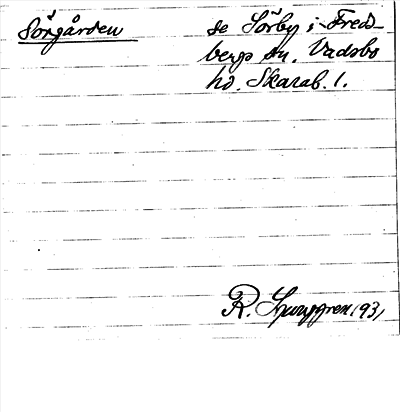 Sörgården se Sörby i Fred-
bergs sn. Vadsbo
hd. Skarab. l.
R. Ljunggren 1931